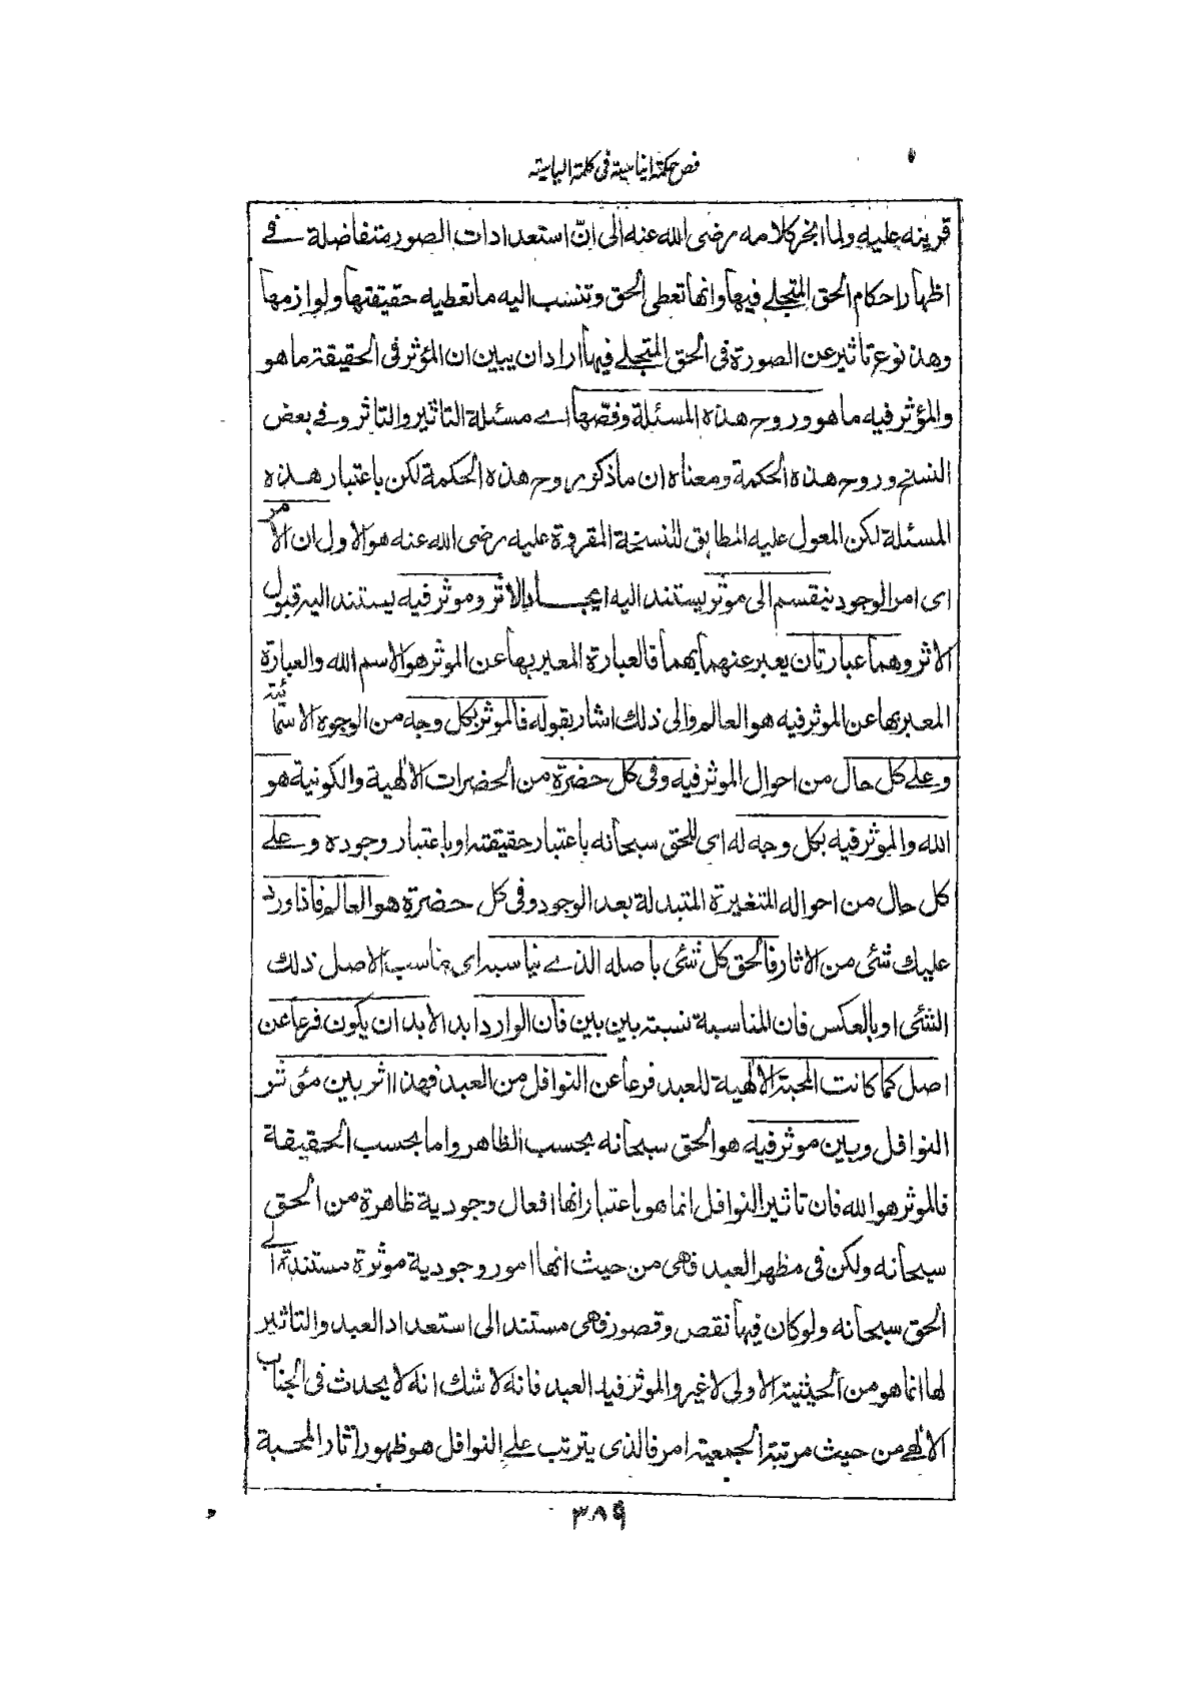 فص حكمة ايناسية فى كلمة الياسية
قرينه عليه ولما انجر كلامه رضى الله عنه الى انّ استعدادات الصور متفاضلة فے
اظهار احكام الحق المتجلے فيها وانها تعطى الحق وتنسب اليه ما تعطيه حقيقتها ولوازمها
وهذ نوع تاثير عن الصورة فى الحق المتجلے فيها اراد ان يبين ان المؤثر فى الحقيقة ما هو
والمؤثر فيه ما هو وروح هذه المسئلة وفصّها اے مسئلة التاثير والتاثر وفے بعض
النسخ وروح هذه الحكمة ومعناه ان ما ذكر روح هذه الحكمة لكن باعتبار هذه
المسئلة لكن المعول عليه المطابق للنسخة المقروة عليه رضى الله عنه هو الاول ان الامر
اى امر الوجود ينقسم الى موثر يستند اليه ايجاد الاثر وموثر فيه يستند اليه قبول
الاثر وهما عبارتان يعبر عنهما بهما فالعبارة المعبر بها عن الموثر هو الاسم الله والعبارة
المعبر بها عن الموثر فيه هو العالم والى ذلك اشار بقوله فالموثر بكل وجه من الوجوه الاسمائية
وعلے كل حال من احوال الموثر فيه وفى كل حضرة من الحضرات الالهية والكونية هو
الله والموثر فيه بكل وجه له اى للحق سبحانه باعتبار حقيقته او باعتبار وجوده وعلے
كل حال من احواله المتغيرة المتبدلة بعد الوجود وفى كل حضرة هو العالم فاذا ورد
عليك شئى من الاثار فالحق كل شئى باصله الذے يناسبه اى يناسب الاصل ذلك
الشئى او بالعكس فان المناسبة نسبة بين بين فان الوارد ابدا لابد ان يكون فرعا عن
اصل كما كانت المحبة الالهية للعبد فرعا عن النوافل من العبد فهذا اثر بين مؤثر
النوافل وبين موثر فيه هو الحق سبحانه بحسب الظاهر واما بحسب الحقيقة
فالموثر هو الله فان تاثير النوافل انما هو باعتبار انها افعال وجودية ظاهرة من الحق
سبحانه ولكن فى مظهر العبد فهى من حيث انها امور وجودية موثرة مستندة الے
الحق سبحانه ولو كان فيها نقص وقصور فهى مستند الى استعداد العبد والتاثير
لها انما هو من الحيثية الاولى لا غير والموثر فيه العبد فانه لا شك انه لا يحدث فى الجناب
الالهے من حيث مرتبة الجمعية امر فالذى يترتب علے النوافل هو ظهور اثار المحبة
۳۸۹